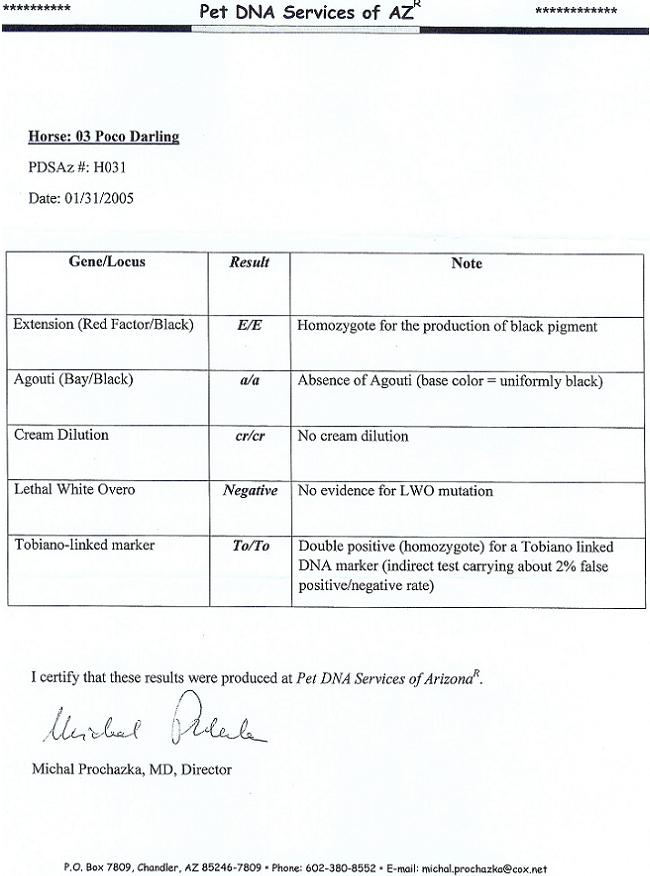 ********** Pet DNA Services of AZR ************
Horse: 03 Poco Darling
PDSAz #: H031
Date: 01/31/2005
Gene/Locus Result Note
Extension (Red Factor/Black) E/E Homozygote for the production of black pigment
Agouti (Bay/Black) a/a Absence of Agouti (base color = uniformly black)
Cream Dilution cr/cr No cream dilution
Lethal White Overo Negative No evidence for LWO mutation
Tobiano-linked marker To/To Double positive (homozygote) for a Tobiano linked
DNA marker (indirect test carrying about 2% false
positive/negative rate)
I certify that these results were produced at Pet DNA Services of ArizonaR.
Michal
Michal Prochazka, MD, Director
P.O. Box 7809, Chandler, AZ 85246-7809 • Phone: 602-380-8552 • E-mail: michal.prochazka@cox.net